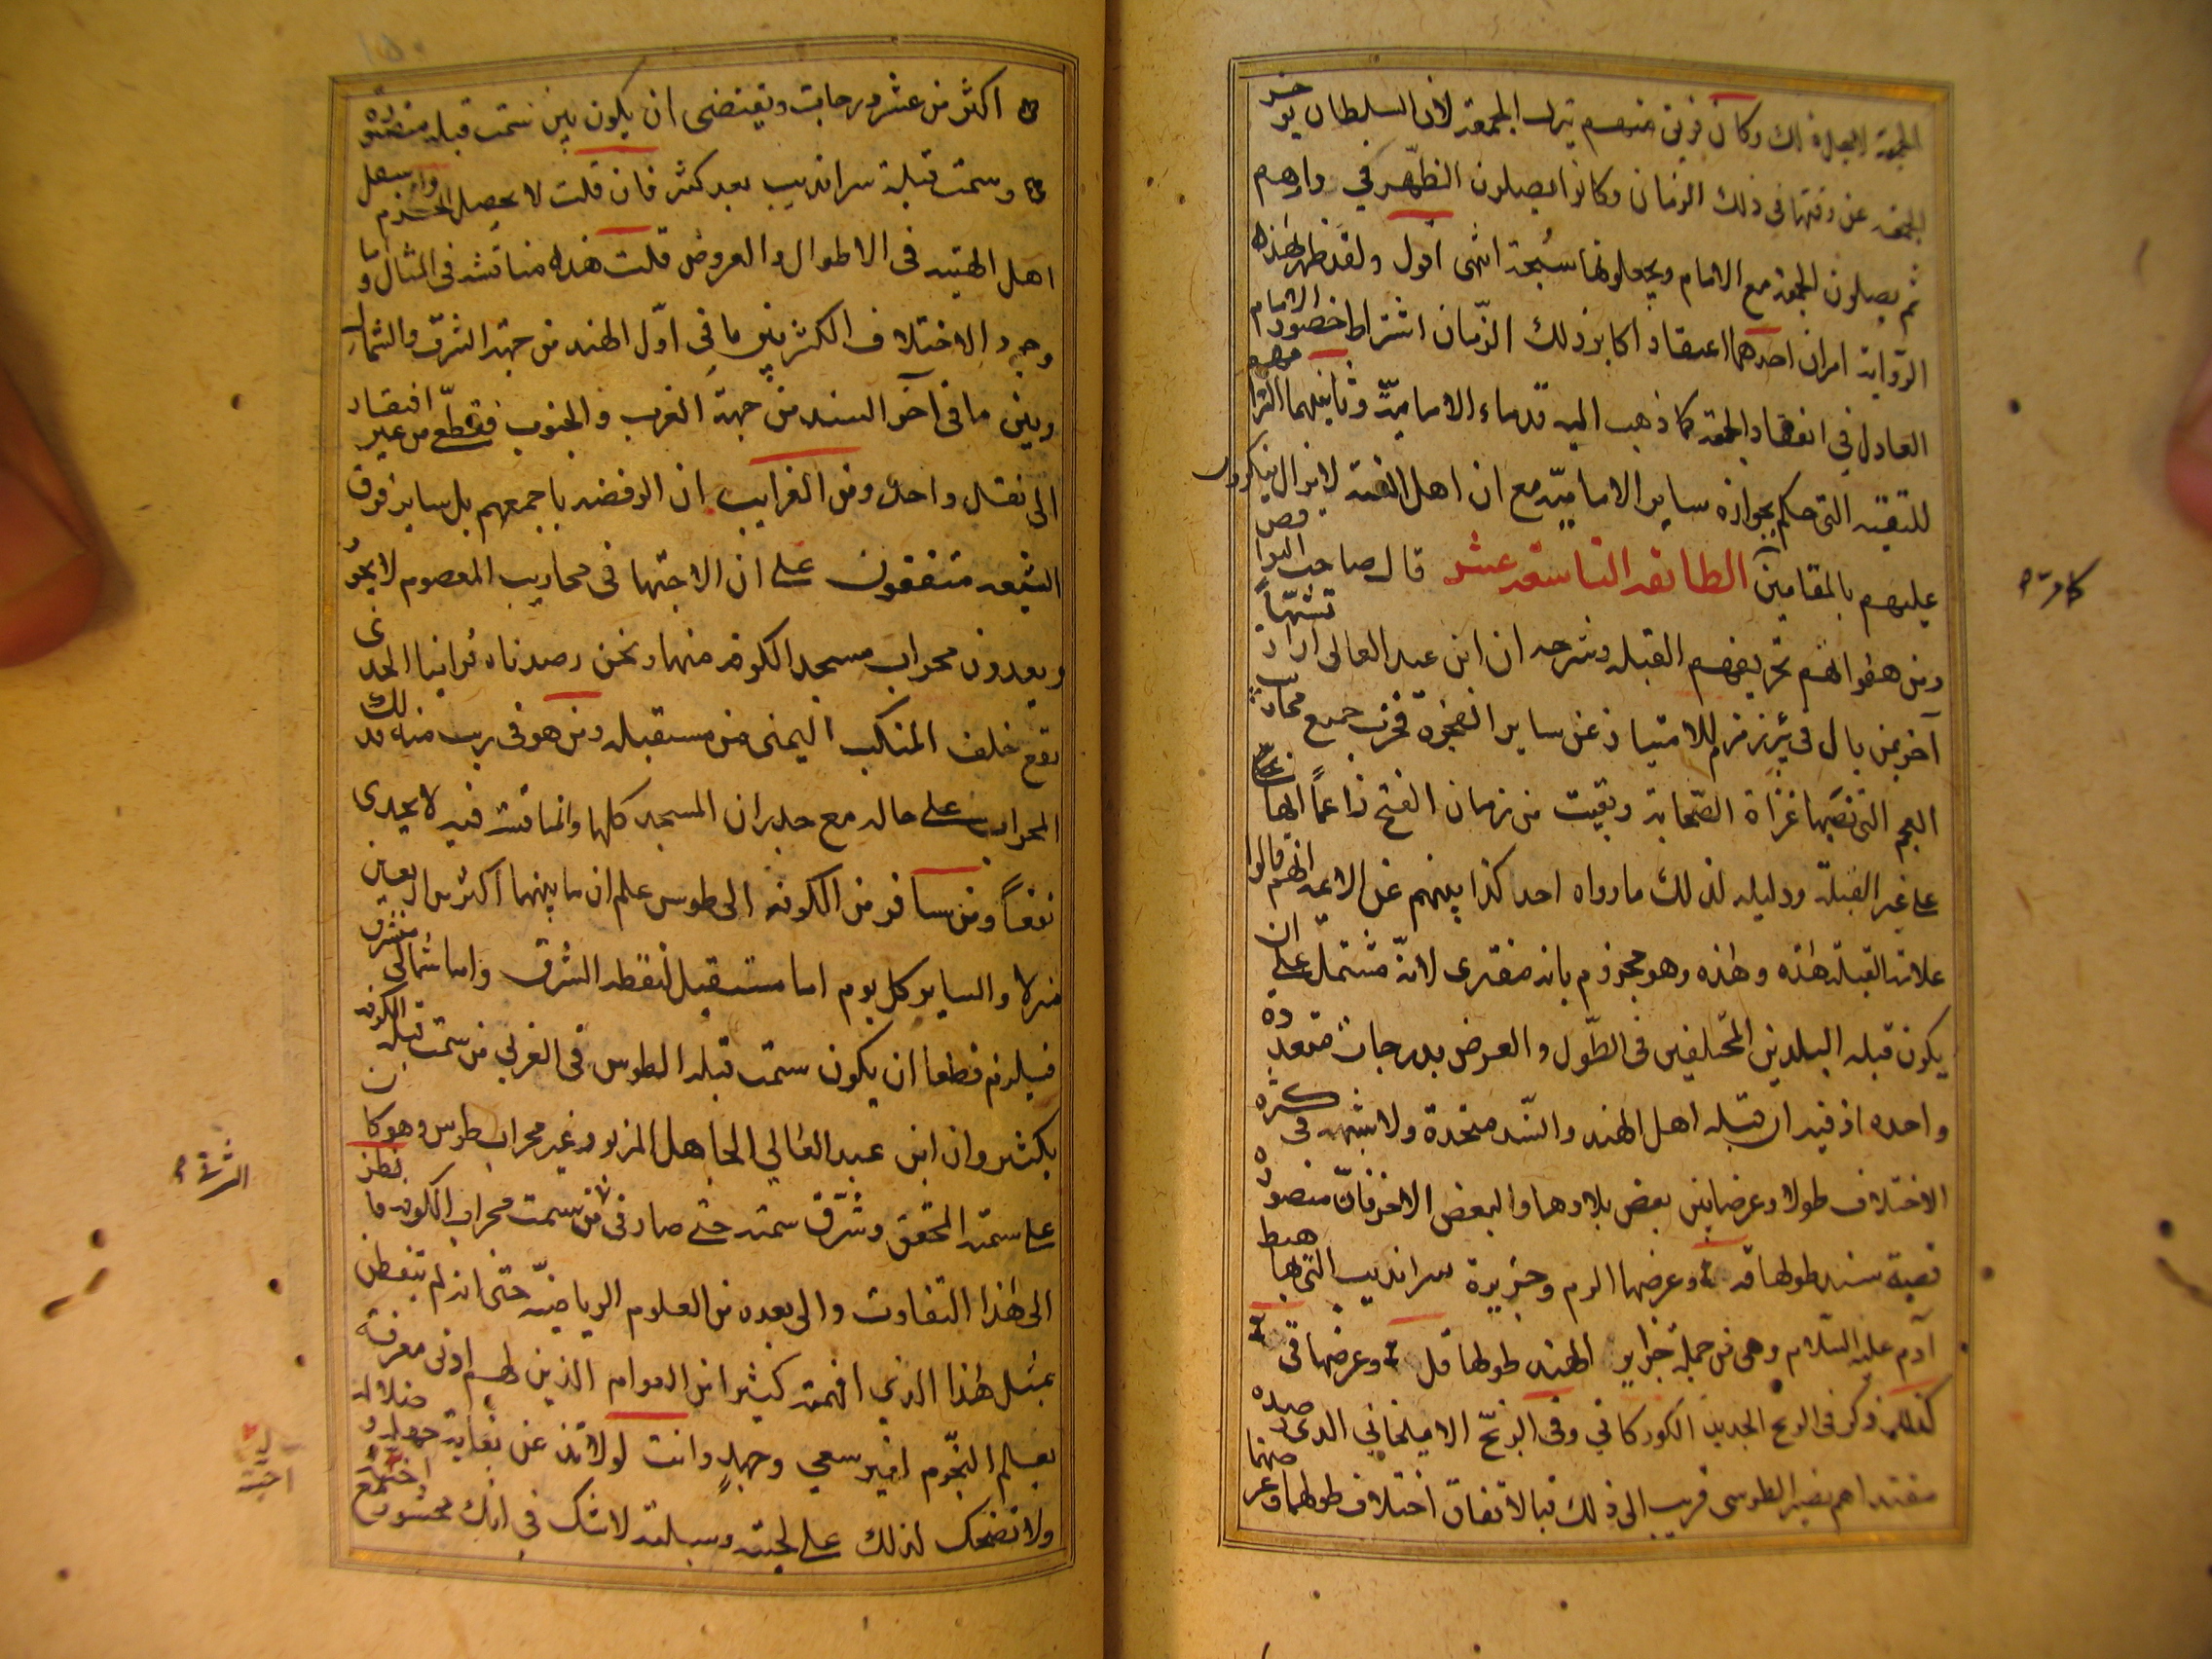 الجمعة لاجل ذلك وكان فريق منهم يترك الجمعة لان السلطان يوخر
الجمعة عن وقتها في ذلك الزمان وكانوا يصلون الظهر في دارهم
ثم يصلون الجمعة مع الامام ويجعلونها سبحة انتهى اقول ولقد ظهر لهذه
الرواية امران احدهما اعتقاد اكابر ذلك الزمان اشتراط حضور الامام
العادل في انعقاد الجمعة كما ذهب اليه قدماء الامامية وثانيهما التزامهم
للتقية التي حكم بجوازه ساير الامامية مع ان اهل الفتنة لا يزال ينكرون
عليهم بالمقامين الطائفه التاسعه عشر قال صاحب النواقض
ومن هفواتهم تحريفهم القبله وشرحه ان ابن عبد العالى اراد تشبهاً
آخر بمن بال في بئر زمزم للامتياز عن ساير الفجرة فخرب جميع محاريب
العجم التي نصبها غزاة الصحابة وبقيت من زمان الفتح زاعماً انها
على غير القبلة ودليله لذلك ما رواه احد كذابيهم عن الائمه انهم قالوا
علامة القبلة هذه وهذه وهو مجزوم بانه مفترى لانه مشتمل على ان
يكون قبلة البلدين المختلفين في الطول والعرض بدرجات متعددة
واحده اذ فيه ان قبلة اهل الهند والسند متحدة ولا شبهه في كثرة
الاختلاف طولا وعرضا بين بعض بلادها والبعض الاخر فان منصورة
قصبة سند طولها قه وعرضها الرم وجزيرة سرانديب التي بها هبط
آدم عليه السلام وهي من جملة جزاير الهند طولها قل وعرضها في
كذلك ذكر في الزيج الجديد الكوركاني وفي الزيج الايلخاني الذي رصده
مقتداهم نصير الطوسى قريب الى ذلك فبالاتفاق اختلاف طولهما وعرضهما
اكثر من عشر درجات ويقتضى ان يكون بين سمت قبلة منصوره
وسمت قبلة سرانديب بعد كثر فان قلت لا يحصل الجزم
اهل الهيئه في الاطوال والعروض قلت هذه مناقشه في المثال و
وجود الاختلاف الكثير بين ما في اول الهند من جهة الشرق والشمال
وبين ما في آخر السند من جهة الغرب والجنوب فقطع من غير افتقار
الى نقل واحد ومن الغرايب ان الرفضه باجمعهم بل ساير فرق
الشيعه متفقون على ان الاجتها في محاريب المعصوم لا يجوز
ويعدون محراب مسجد الكوفه منها ونحن رصدناه فراينا الجدى
تقع خلف المنكب اليمنى من مستقبله ومن هو في ريب منه
المحراب على حاله مع جدران المسجد كلها والمناقشه فيه لا يجدى
نفعاً ومن سافر من الكوفة الى طوس علم ان ما بينهما اكثر من اربعين
منزلا والساير كل يوم اما مستقبل لنقطه الشرق واما شمالى مشرق
فيلزم قطعا ان يكون سمت قبله الطوس في الغربى من سمت قبله الكوفه
بكثير وان ابن عبد العالي الجاهل المزبور غير محراب طوس وهو كان
على سمته المحقق وشرق سمته حتى صار في من سمت محراب الكوفه فانظر
الى هذا التفاوت والى بعده من العلوم الرياضيه حتى انه لم يتفطن
بمثل هذا الذي افهمته كثيرا من العوام الذين لهم ادنى معرفة
بعلم النجوم اثير سعي وجهد وانت لو لا تذ عن بغاية جهله و ضلاله
ولا تضحك لذلك على لحيته وسبلته لا شك في انك محشور
كافرة م
الشرق م